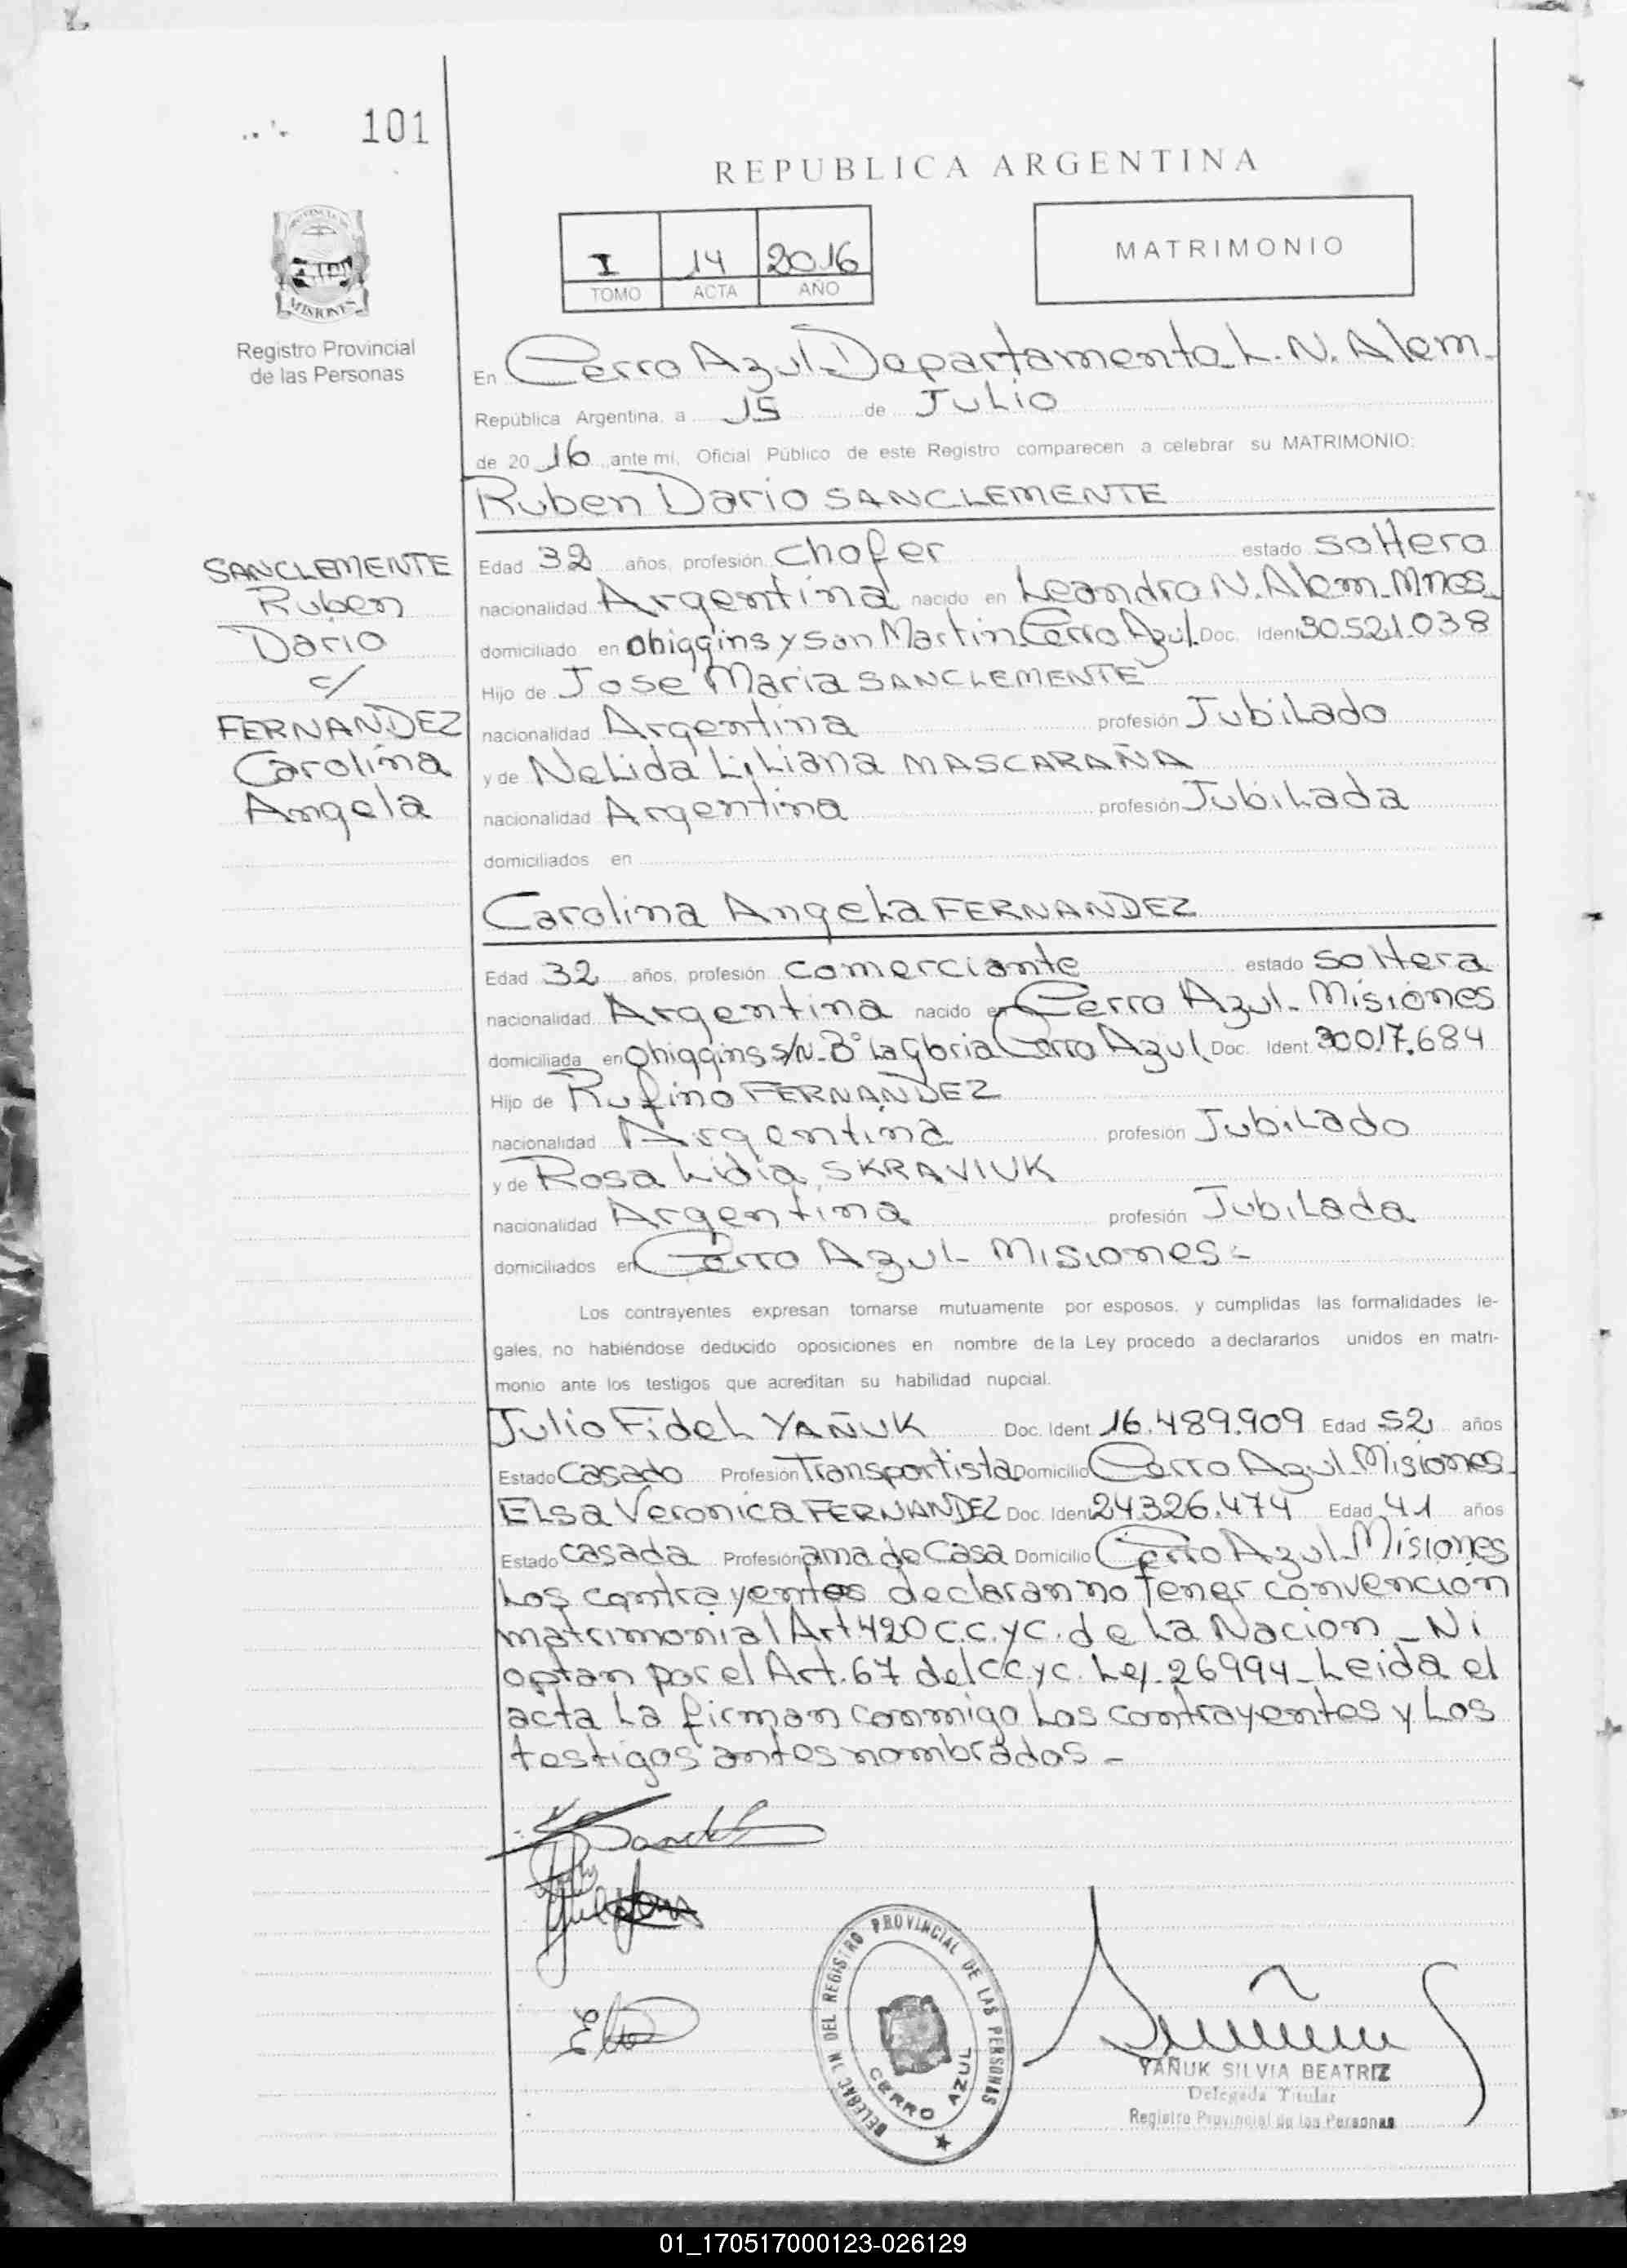 101
REPUBLICA ARGENTINA
PROVINCIA DE
MISIONES
Registro Provincial
de las Personas
I 14 2016
TOMO ACTA AÑO
MATRIMONIO
En Cerro Azul Departamento L. N. Alem.
República Argentina, a 15 de Julio
de 20 16 ante mi, Oficial Público de este Registro comparecen a celebrar su MATRIMONIO:
Ruben Dario SANCLEMENTE
SANCLEMENTE
Ruben
Dario
c/
FERNANDEZ
Carolina
Angela
Edad 32 años, profesión Chofer estado soltero
nacionalidad Argentina nacido en Leandro N. Alem. Mnes
domiciliado en Ohiggins y San Martin Cerro Azul. Doc. Ident 30.521.038
Hijo de Jose Maria SANCLEMENTE
nacionalidad Argentina profesión Jubilado
y de Nelida Liliana MASCARAÑA
nacionalidad Argentina profesión Jubilada
domiciliados en
Carolina Angela FERNANDEZ
Edad 32 años, profesión comerciante estado soltera
nacionalidad Argentina nacido en Cerro Azul - Misiones
domiciliada en Ohiggins s/N. B° La Gloria Cerro Azul. Doc. Ident. 30017.684
Hijo de Rufino FERNANDEZ
nacionalidad Argentina profesión Jubilado
y de Rosa Lidia SKRAVIUK
nacionalidad Argentina profesión Jubilada
domiciliados en Cerro Azul - Misiones -
Los contrayentes expresan tomarse mutuamente por esposos, y cumplidas las formalidades le-
gales, no habiéndose deducido oposiciones en nombre de la Ley procedo a declararlos unidos en matri-
monio ante los testigos que acreditan su habilidad nupcial.
Julio Fidel YAÑUK Doc. Ident. 16.489.909 Edad 52 años
Estado Casado Profesión Transportista Domicilio Cerro Azul - Misiones
Elsa Veronica FERNANDEZ Doc. Ident 24.326.474 Edad 41 años
Estado casada Profesión ama de Casa Domicilio Cerro Azul - Misiones
Los contrayentes declaran no tener convención
matrimonial Art 420 C.C.yC. de La Nacion - Ni
optan por el Art. 67 del CC.yC. Ley. 26994 - Leida el
acta La firman conmigo Los contrayentes y Los
testigos antes nombrados -
DELEGACION DEL REGISTRO PROVINCIAL DE LAS PERSONAS
CERRO AZUL
YAÑUK SILVIA BEATRIZ
Delegada Titular
Registro Provincial de las Personas
01_170517000123-026129